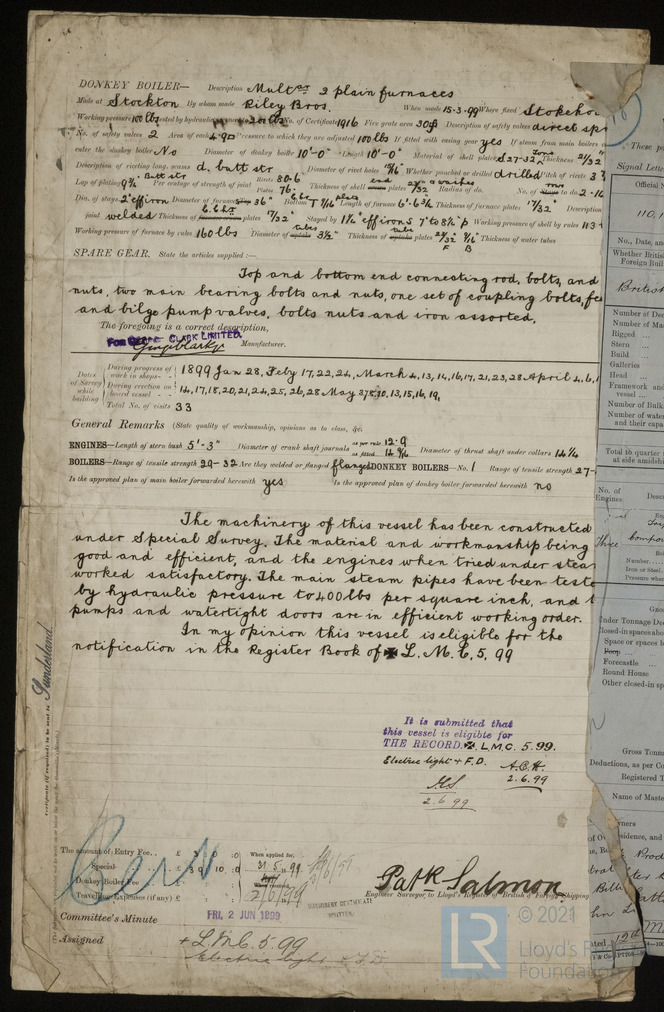 DONKEY BOILER— Description Multr 2 plain furnaces
Made at Stockton By whom made Riley Bros. When made 15-3-99 Where fixed Stokeho
Working pressure 100 lbs tested by hydraulic 200 lbs No. of Certificate 1916 Fire grate area 30 Description of safety valves direct spr
No. of safety valves 2 Area of each 4.90 Pressure to which they are adjusted 100 lbs If fitted with easing gear yes If steam from main boilers
enter the donkey boiler No Diameter of donkey boiler 10'-0" Length 10'-0" Material of shell plates S 27-32 Thickness 21/32"
Description of riveting long. seams d. butt str Diameter of rivet holes 15/16" Whether punched or drilled drilled Pitch of rivets 3
Lap of plating 9 3/4 Butt str Per centage of strength of joint Rivets 80.6 Plates 76. Thickness of shell end plates Radius of do. No. of rows to do. 2-1
Dia. of stays 2" eff iron Diameter of furnace 36" Bottom Length of furnace 6'.6 3/4 Thickness of plates 17/32" Description
joint welded Thickness of plates 17/32" Stayed by 1 1/4" eff iron S 7" to 8 1/2" p Working pressure of shell by rules 113
Working pressure of furnace by rules 160 lbs Diameter of tubes 3 1/2" Thickness of tube plates 24/32" F 9/16" B Thickness of water tubes
SPARE GEAR. State the articles supplied :—
Top and bottom end connecting rod, bolts, and
nuts, two main bearing bolts and nuts, one set of coupling bolts, fee
and bilge pump valves, bolts nuts and iron assorted.
The foregoing is a correct description,
FOR GEORGE CLARK LIMITED.
George Clark Manufacturer.
Dates of Survey while building
During progress of work in shops— 1899 Jan 28, Feby 17, 22, 24, March 4, 13, 14, 16, 17, 21, 23, 28 April 4, 6, 1
During erection on board vessel— 14, 17, 18, 20, 21, 24, 25, 26, 28 May 3, 8, 10, 13, 15, 16, 19,
Total No. of visits 33
General Remarks (State quality of workmanship, opinions as to class, &c.
ENGINES—Length of stern bush 5'-3" Diameter of crank shaft journals as per rule 12.9 as fitted 14 9/16 Diameter of thrust shaft under collars 14 1/4
BOILERS—Range of tensile strength 29-32 Are they welded or flanged flanged DONKEY BOILERS—No. 1 Range of tensile strength 27-
Is the approved plan of main boiler forwarded herewith yes Is the approved plan of donkey boiler forwarded herewith no
The machinery of this vessel has been constructed
under Special Survey. The material and workmanship being
good and efficient, and the engines when tried under stea
worked satisfactory. The main steam pipes have been teste
by hydraulic pressure to 400 lbs per square inch, and t
pumps and watertight doors are in efficient working order.
In my opinion this vessel is eligible for the
notification in the Register Book of ✠ L. M. C. 5. 99
Sunderland
Certificate (if required) to be sent to
It is submitted that
this vessel is eligible for
THE RECORD. ✠ L.M.C. 5.99.
Electric light + F.D.
2.6.99
2.6.99
The amount of Entry Fee.. £ 3 : 0 : 0 When applied for,
Special £ 30 : 10 : 0 31.5.99
Donkey Boiler Fee £ : : When received,
Travelling Expenses (if any) £ : : 2/6/99
MACHINERY CERTIFICATE
WRITTEN
Patk Salmon
Engineer Surveyor to Lloyd's Register of British & Foreign Shipping
Committee's Minute FRI, 2 JUN 1899
Assigned + L.M.C. 5.99
Electric light + F.D
These par
Signal Letter
Official N
110,1
No., Date, an
Whether British
Foreign Buil
British
Number of Dec
Number of Mas
Rigged ..
Stern ..
Build ..
Galleries ..
Head ..
Framework and
vessel ...
Number of Bulk
Number of water
and their capa
Total to quarter
at side amidshi
No. of
Engines
Descr
Three compou
Number....
Iron or Steel.
Pressure when
Gros
Under Tonnage Dec
Closed-in spaces abo
Space or spaces be
Poop ...
Forecastle ...
Round House
Other closed-in sp
Gross Tonna
Deductions, as per Co
Registered T
Name of Master
wners
© 2021
Lloyd's Register
Foundation
LR